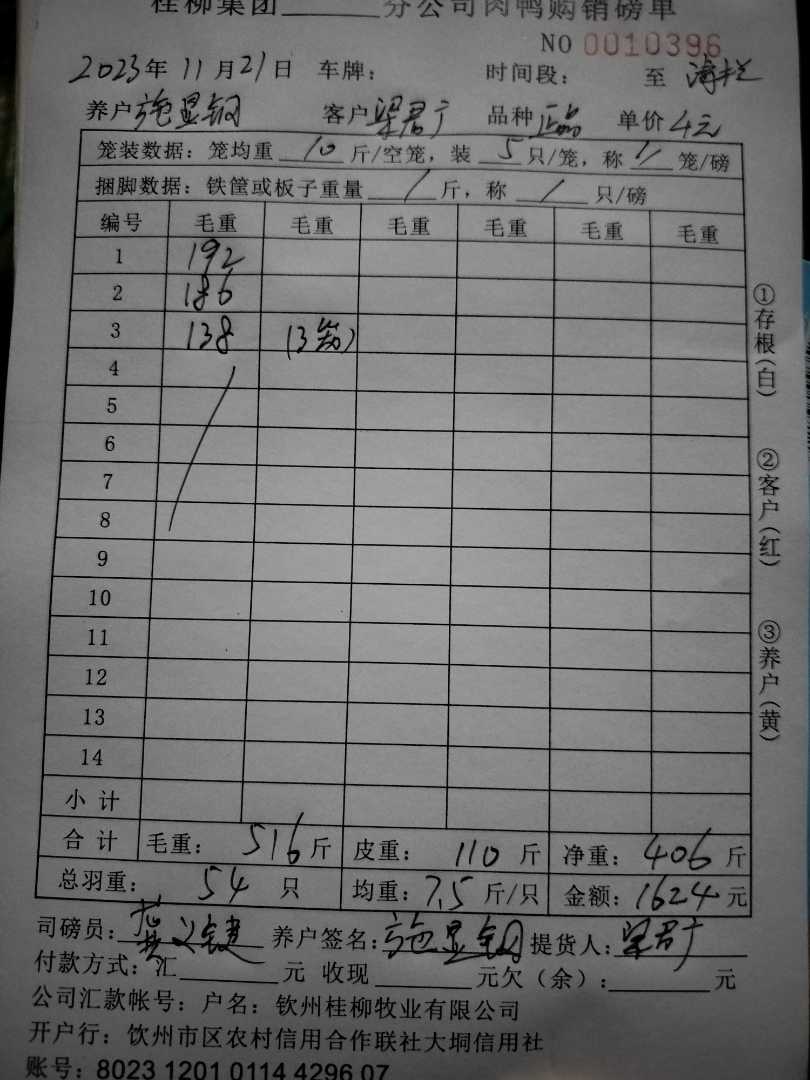 桂柳集团______分公司肉鸭购销磅单
NO 0010396
2023年11月21日 车牌： 时间段： 至
养户 施显钢 客户 梁君广 品种 正品 单价 4元
笼装数据：笼均重 10 斤/空笼，装 5 只/笼，称 笼/磅
捆脚数据：铁筐或板子重量 / 斤，称 / 只/磅
编号 毛重 毛重 毛重 毛重 毛重 毛重
1 192
2 186
3 138 (3笼)
4
5
6
7
8
9
10
11
12
13
14
小计
合计 毛重： 516斤 皮重： 110 斤 净重： 406 斤
总羽重： 54 只 均重： 7.5 斤/只 金额： 1624 元
司磅员： 养户签名： 施显钢 提货人： 梁君广
付款方式：汇______元 收现______元欠（余）：______元
公司汇款帐号：户名：钦州桂柳牧业有限公司
开户行：饮州市区农村信用合作联社大垌信用社
账号：8023 1201 0114 4296 07
①存根(白) ②客户(红) ③养户(黄)